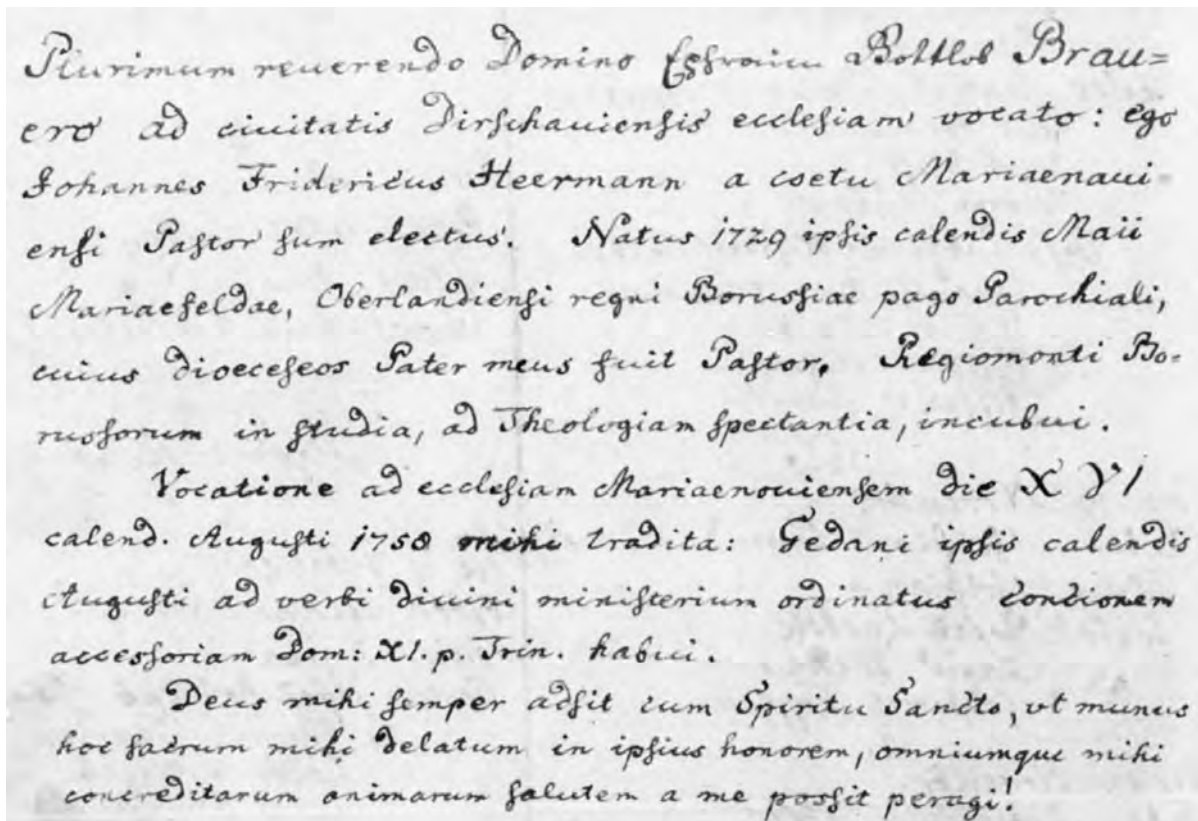 Plurimum reuerendo Domino Ephraim Gottlob Brau=
ero ad ciuitatis Dirschauiensis ecclesiam vocato: ego
Johannes Fridericus Heermann a coetu Mariaenaui-
ensi Pastor sum electus. Natus 1729 ipsis calendis Maii
Mariaefeldae, Oberlandiensi regni Borussiae pago Parochiali,
cuius dioeceseos Pater meus fuit Pastor. Regiomonti Bo-
russorum in studia, ad Theologiam spectantia, incubui.
Vocatione ad ecclesiam Mariaenouiensem die XVI
calend. Augusti 1758 mihi tradita: Gedani ipsis calendis
Augusti ad verbi diuini ministerium ordinatus concionem
accessoriam Dom: XI. p. Trin. habui.
Deus mihi semper adsit cum Spiritu Sancto, vt munus
hoc sacrum mihi delatum in ipsius honorem, omniumque mihi
concreditarum animarum salutem a me possit peragi!